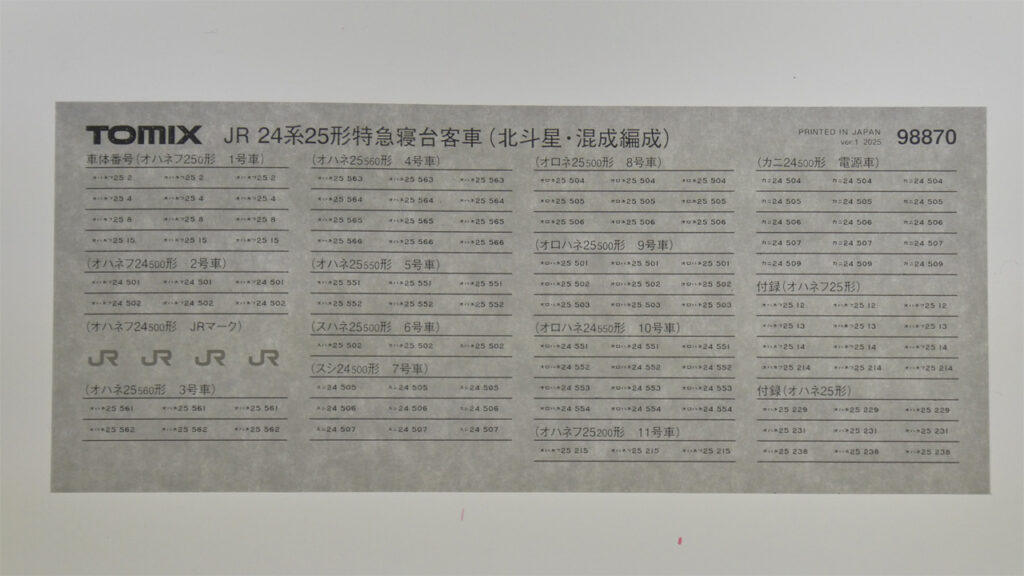 TOMIX JR 24系25形特急寝台客車（北斗星・混成編成） PRINTED IN JAPAN ver.1 2025 98870
車体番号(オハネフ250形 1号車)
オハネフ25 2 オハネフ25 2 オハネフ25 2
オハネフ25 4 オハネフ25 4 オハネフ25 4
オハネフ25 8 オハネフ25 8 オハネフ25 8
オハネフ25 15 オハネフ25 15 オハネフ25 15
(オハネフ24500形 2号車)
オハネフ24 501 オハネフ24 501 オハネフ24 501
オハネフ24 502 オハネフ24 502 オハネフ24 502
(オハネフ24500形 JRマーク)
JR JR JR JR
(オハネ25560形 3号車)
オハネ25 561 オハネ25 561 オハネ25 561
オハネ25 562 オハネ25 562 オハネ25 562
(オハネ25560形 4号車)
オハネ25 563 オハネ25 563 オハネ25 563
オハネ25 564 オハネ25 564 オハネ25 564
オハネ25 565 オハネ25 565 オハネ25 565
オハネ25 566 オハネ25 566 オハネ25 566
(オハネ25550形 5号車)
オハネ25 551 オハネ25 551 オハネ25 551
オハネ25 552 オハネ25 552 オハネ25 552
(スハネ25500形 6号車)
スハネ25 502 スハネ25 502 スハネ25 502
(スシ24500形 7号車)
スシ24 505 スシ24 505 スシ24 505
スシ24 506 スシ24 506 スシ24 506
スシ24 507 スシ24 507 スシ24 507
(オロネ25500形 8号車)
オロネ25 504 オロネ25 504 オロネ25 504
オロネ25 505 オロネ25 505 オロネ25 505
オロネ25 506 オロネ25 506 オロネ25 506
(オロハネ25500形 9号車)
オロハネ25 501 オロハネ25 501 オロハネ25 501
オロハネ25 502 オロハネ25 502 オロハネ25 502
オロハネ25 503 オロハネ25 503 オロハネ25 503
(オロハネ24550形 10号車)
オロハネ24 551 オロハネ24 551 オロハネ24 551
オロハネ24 552 オロハネ24 552 オロハネ24 552
オロハネ24 553 オロハネ24 553 オロハネ24 553
オロハネ24 554 オロハネ24 554 オロハネ24 554
(オハネフ25200形 11号車)
オハネフ25 215 オハネフ25 215 オハネフ25 215
(カニ24500形 電源車)
カニ24 504 カニ24 504 カニ24 504
カニ24 505 カニ24 505 カニ24 505
カニ24 506 カニ24 506 カニ24 506
カニ24 507 カニ24 507 カニ24 507
カニ24 509 カニ24 509 カニ24 509
付録(オハネフ25形)
オハネフ25 12 オハネフ25 12 オハネフ25 12
オハネフ25 13 オハネフ25 13 オハネフ25 13
オハネフ25 14 オハネフ25 14 オハネフ25 14
オハネフ25 214 オハネフ25 214 オハネフ25 214
付録(オハネ25形)
オハネ25 229 オハネ25 229 オハネ25 229
オハネ25 231 オハネ25 231 オハネ25 231
オハネ25 238 オハネ25 238 オハネ25 238